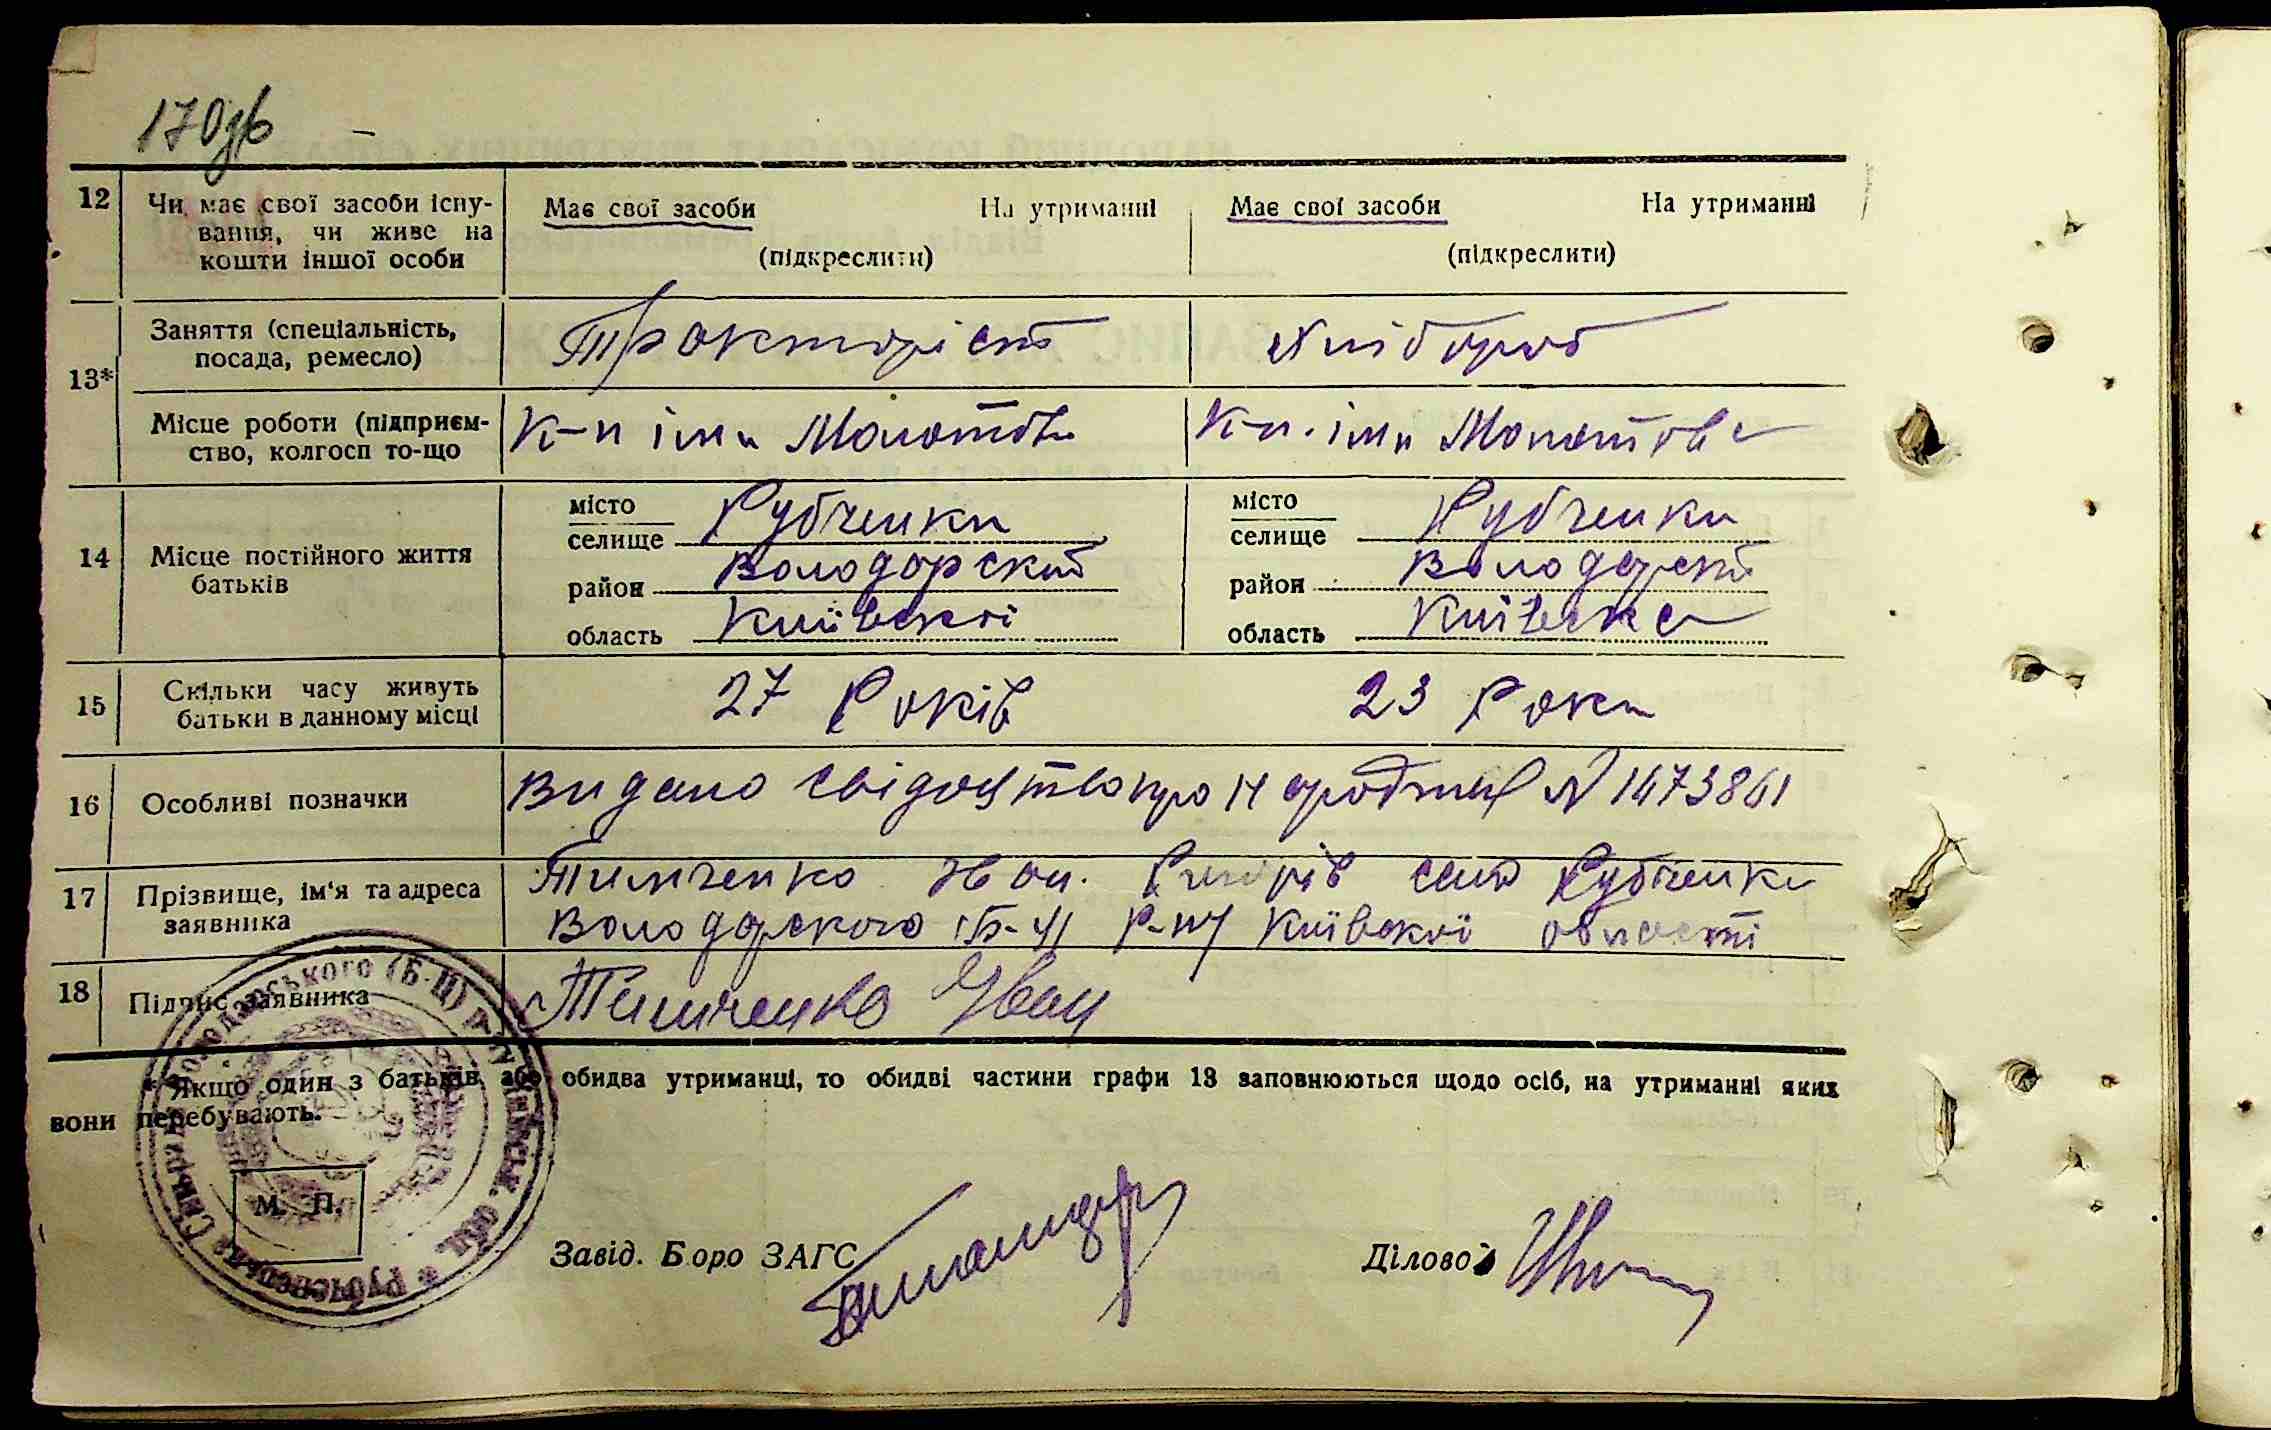 170зв
12 Чи має свої засоби існу- Має свої засоби На утриманні Має свої засоби На утриманні
вання, чи живе на
кошти іншої особи (підкреслити) (підкреслити)
13* Заняття (спеціальність, Тракторіст Хлібороб
посада, ремесло)
Місце роботи (підприєм- К-п імн Молотова К-п. імн Молотова
ство, колгосп то-що
14 Місце постійного життя батьків
місто Рубченки місто Рубченки
селище селище
район Володарский район Володарский
область Київської область Київська
15 Скільки часу живуть 27 Років 23 Роки
батьки в данному місці
16 Особливі позначки Видано свідоцтво про народження N 1473861
17 Прізвище, ім'я та адреса Тимченко Іван село Рубченки
заявника Володарского /Б-Ц/ Р-ну Київскої області
18 Підпис заявника Тимченко Иван
* Якщо один з батьків, або обидва утриманці, то обидві частини графи 13 заповнюються щодо осіб, на утриманні яких
вони перебувають.
М. П.
Завід. Бюро ЗАГС Діловод
* Рубченська Сільрада Володарського (Б-Ц) р-ну Київськ. обл.